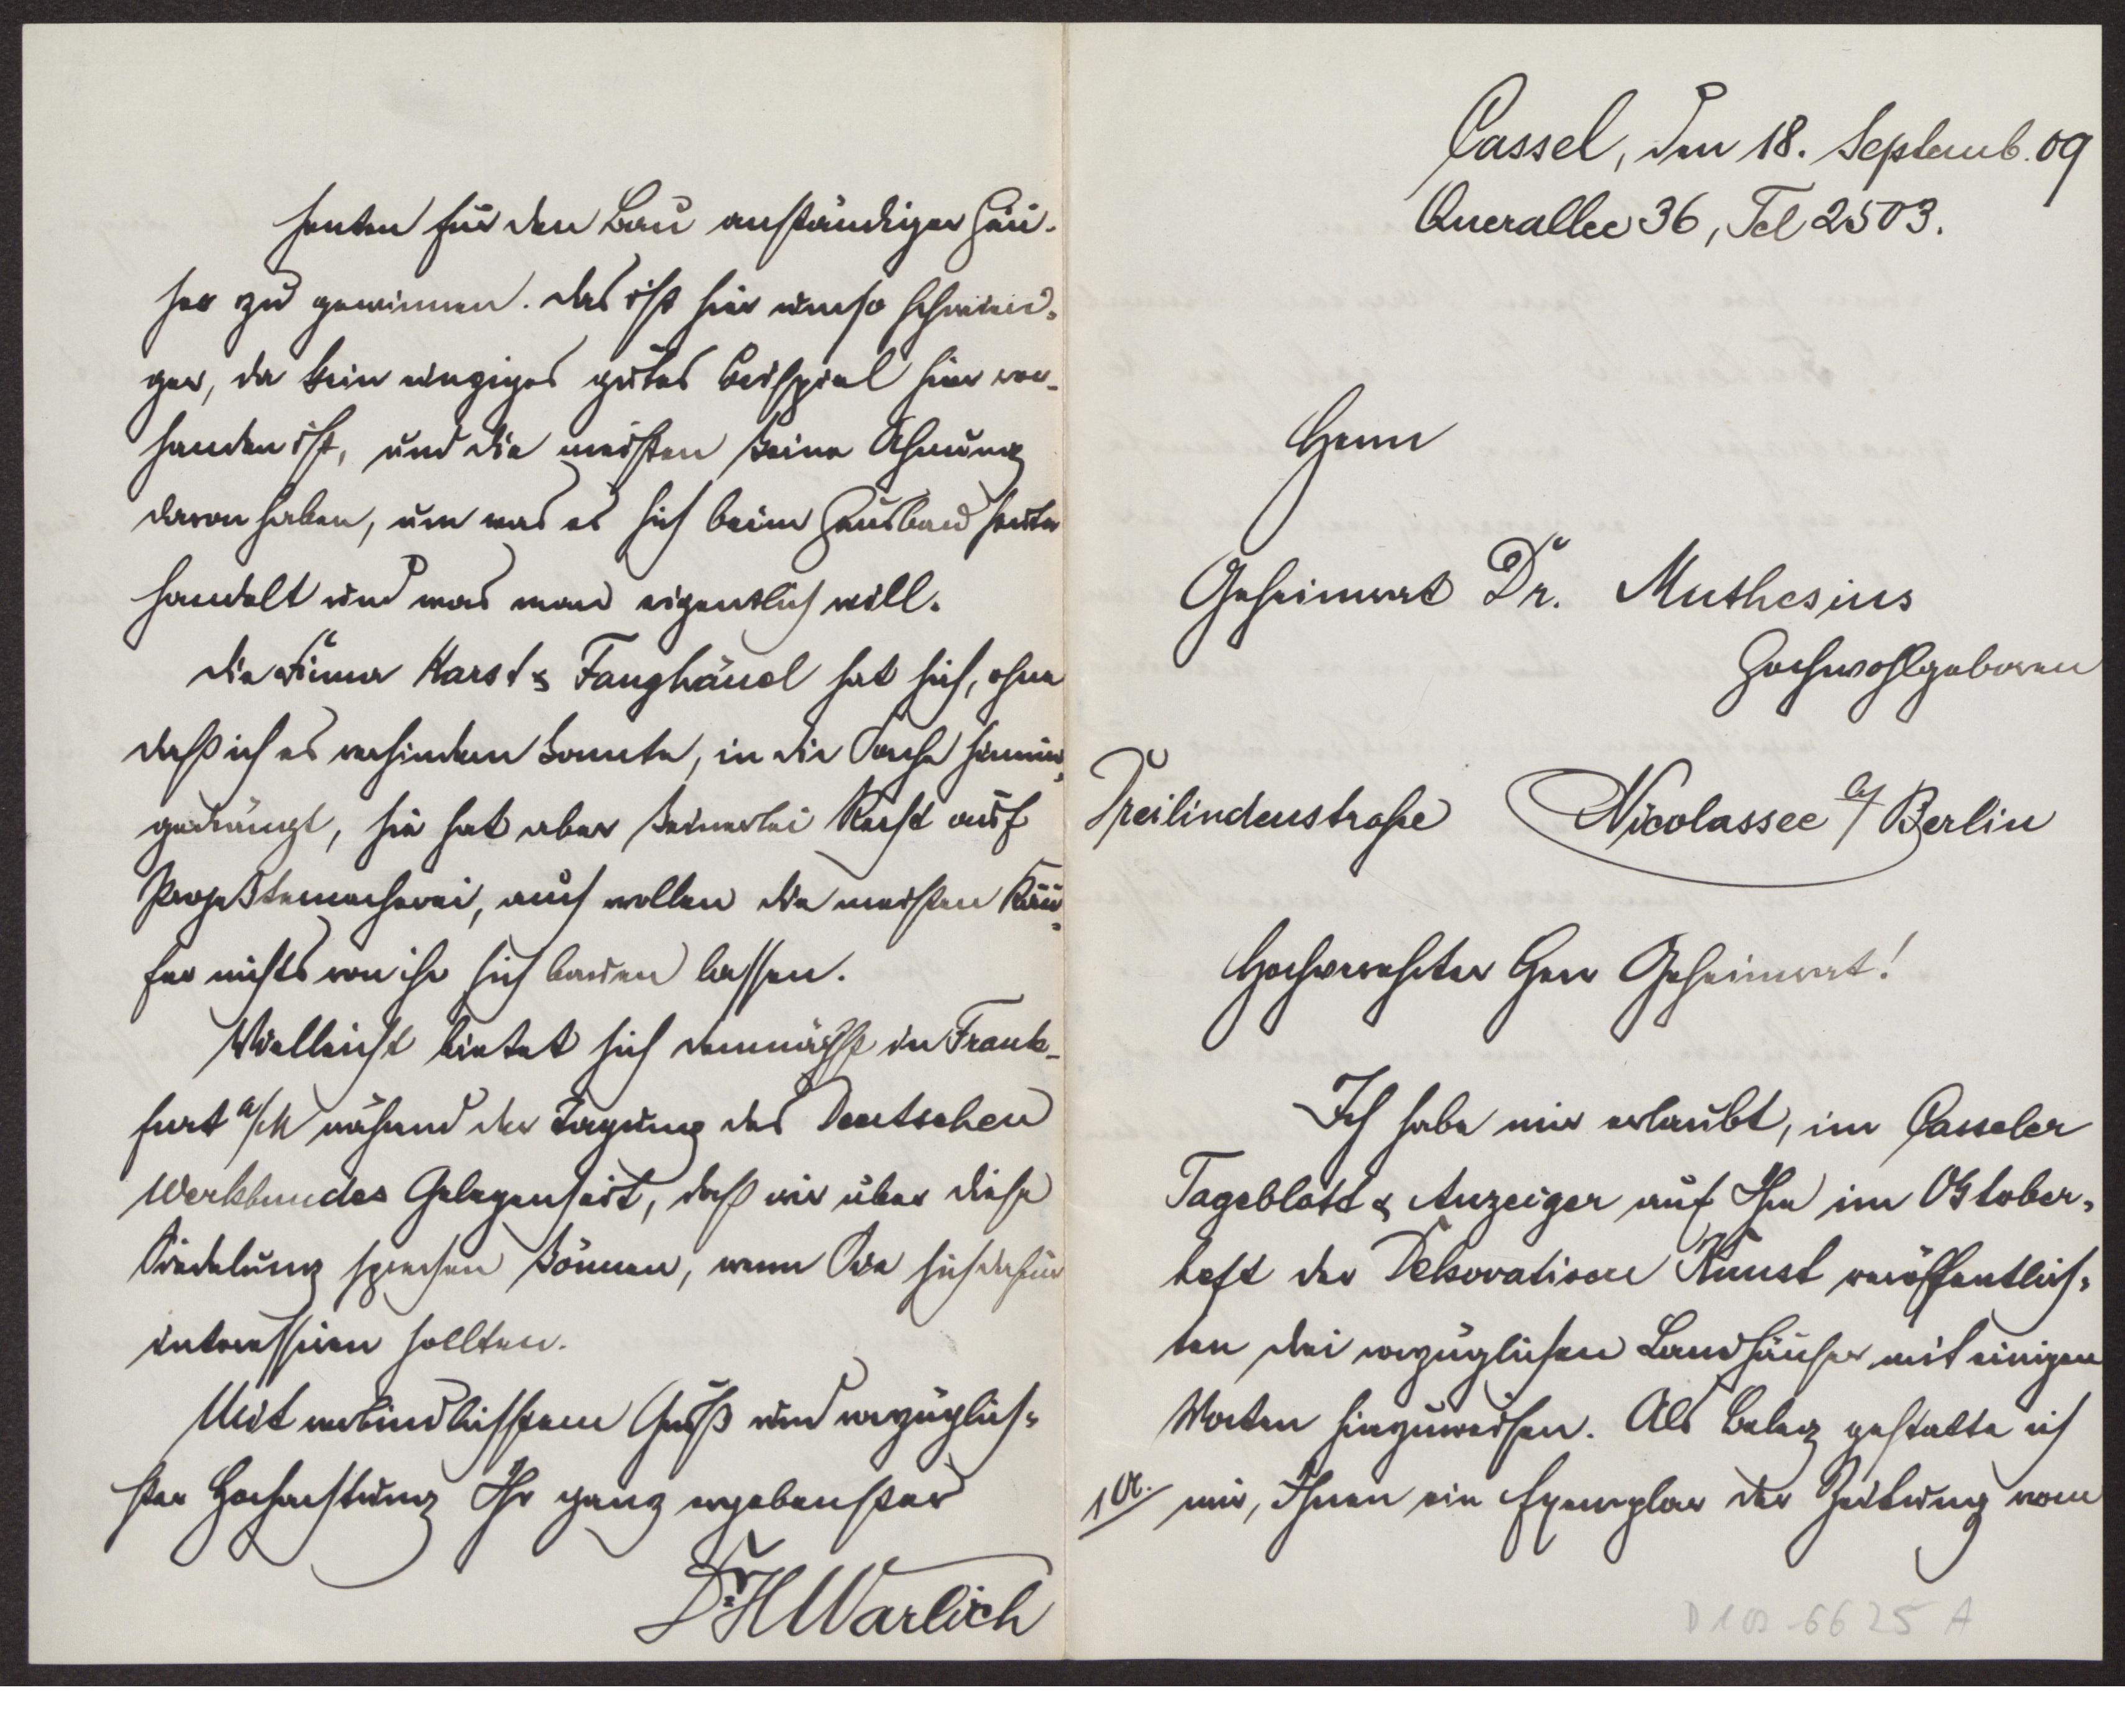 Cassel, den 18. Septemb. 09
Querallee 36, Tel 2503.
Herrn
Geheimrat Dr. Muthesius
Hochwohlgeboren
Dreilindenstraße Nicolassee b/ Berlin
Hochverehrter Herr Geheimrat!
Ich habe mir erlaubt, im Casseler
Tageblatt & Anzeiger auf Ihre im Oktober-
heft der Dekorativen Kunst veröffentlich-
ten drei vorzüglichen Landhäuser mit einigen
Worten hinzuweisen. Als Beleg gestatte ich
1 A. mir, Ihnen ein Exemplar der Zeitung vom
D 102-6625 A
senten für den Bau anständiger Häu-
ser zu gewinnen. Das ist hier umso schwieri-
ger, da kein einziges gutes Beispiel hier vor-
handen ist, und die meisten keine Ahnung
davon haben, um was es sich beim Hausbau heute
handelt und was man eigentlich will.
Die Firma Karst & Fanghänel hat sich, ohne
daß ich es verhindern konnte, in die Sache hinein-
gedrängt, sie hat aber keinerlei Recht auf
Projektemacherei, auch wollen die meisten Käu-
fer nichts von ihr sich bauen lassen.
Vielleicht bietet sich demnächst in Frank-
furt a/M während der Tagung des Deutschen
Werkbundes Gelegenheit, daß wir über diese
Siedelung sprechen können, wenn Sie sich dafür
interessieren sollten.
Mit verbindlichstem Gruß und vorzüglich-
ster Hochachtung Ihr ganz ergebenster
Dr. H Warlich